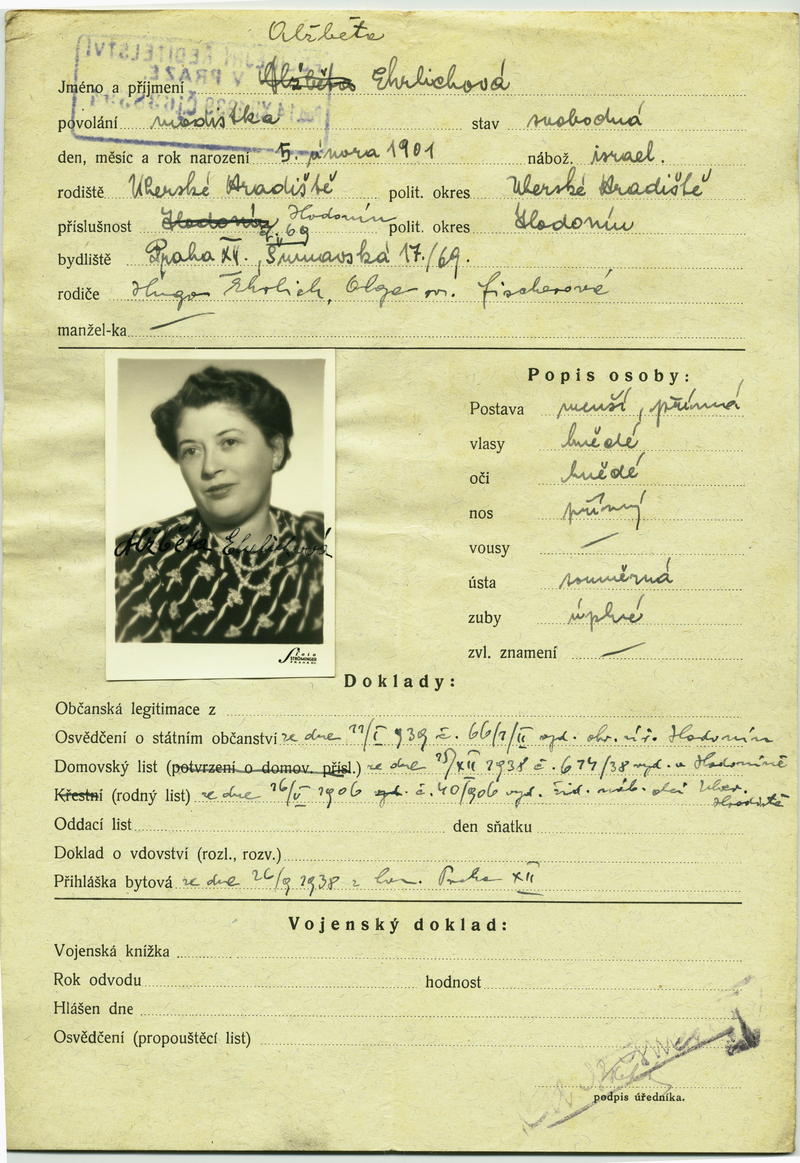 Alžběta
Jméno a příjmení Alžběta Ehrlichová
povolání modistka stav svobodná
den, měsíc a rok narození 5. února 1901 nábož. israel.
rodiště Uherské Hradiště polit. okres Uherské Hradiště
příslušnost Hodonín Hodonín polit. okres Hodonín
č. 69
bydliště Praha XII., Šumavská 17./69.
rodiče Hugo Ehrlich, Olga roz. Fischerová
manžel-ka —
Popis osoby:
Postava menší, přímá
vlasy hnědé
oči hnědé
nos přímý
vousy —
Alžběta Ehrlichová
ústa souměrná
zuby úplné
zvl. znamení —
Foto
STRÖMINGER
Doklady:
Občanská legitimace z
Osvědčení o státním občanství ze dne 11/I 939 č. 66/1/II vyd. okr. úř. Hodonín
Domovský list (potvrzení o domov. přísl.) ze dne XII 1938 č. 674/38 vyd. v Hodoníně
Křestní (rodný list) ze dne 26/V 1906 č. 40/906 vyd. žid. náb. obcí Uher.
Hradiště
Oddací list den sňatku
Doklad o vdovství (rozl., rozv.)
Přihláška bytová ze dne 26/9 1938 z kom. Praha XII
Vojenský doklad:
Vojenská knížka
Rok odvodu hodnost
Hlášen dne
Osvědčení (propouštěcí list)
podpis úředníka.